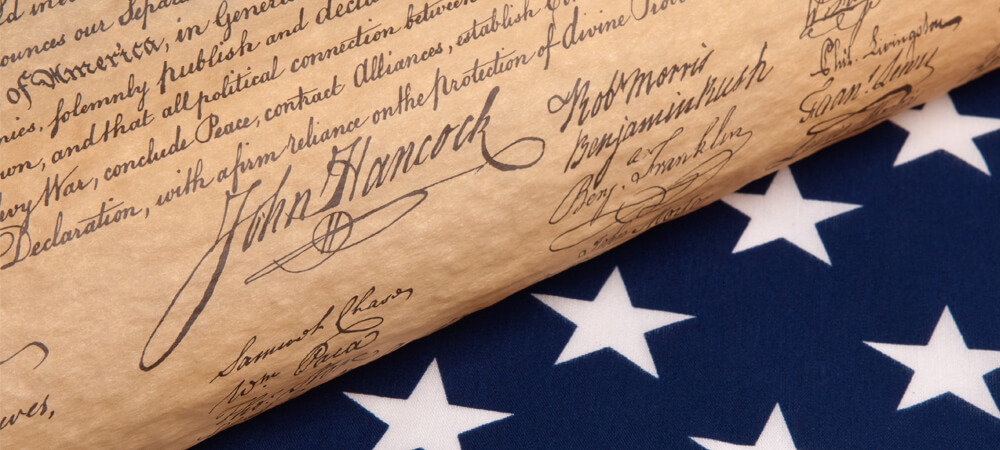 ounces our Separa
of America, in Genera
nies, solemnly publish and decla
wn, and that all political connection between
evy War, conclude Peace, contract Alliances, establish
Declaration, with a firm reliance on the protection of divine Prov
John Hancock
Robt Morris
Benjamin Rush
Benj. Franklin
Phil. Livingston
Samuel Chase
Wm Paca